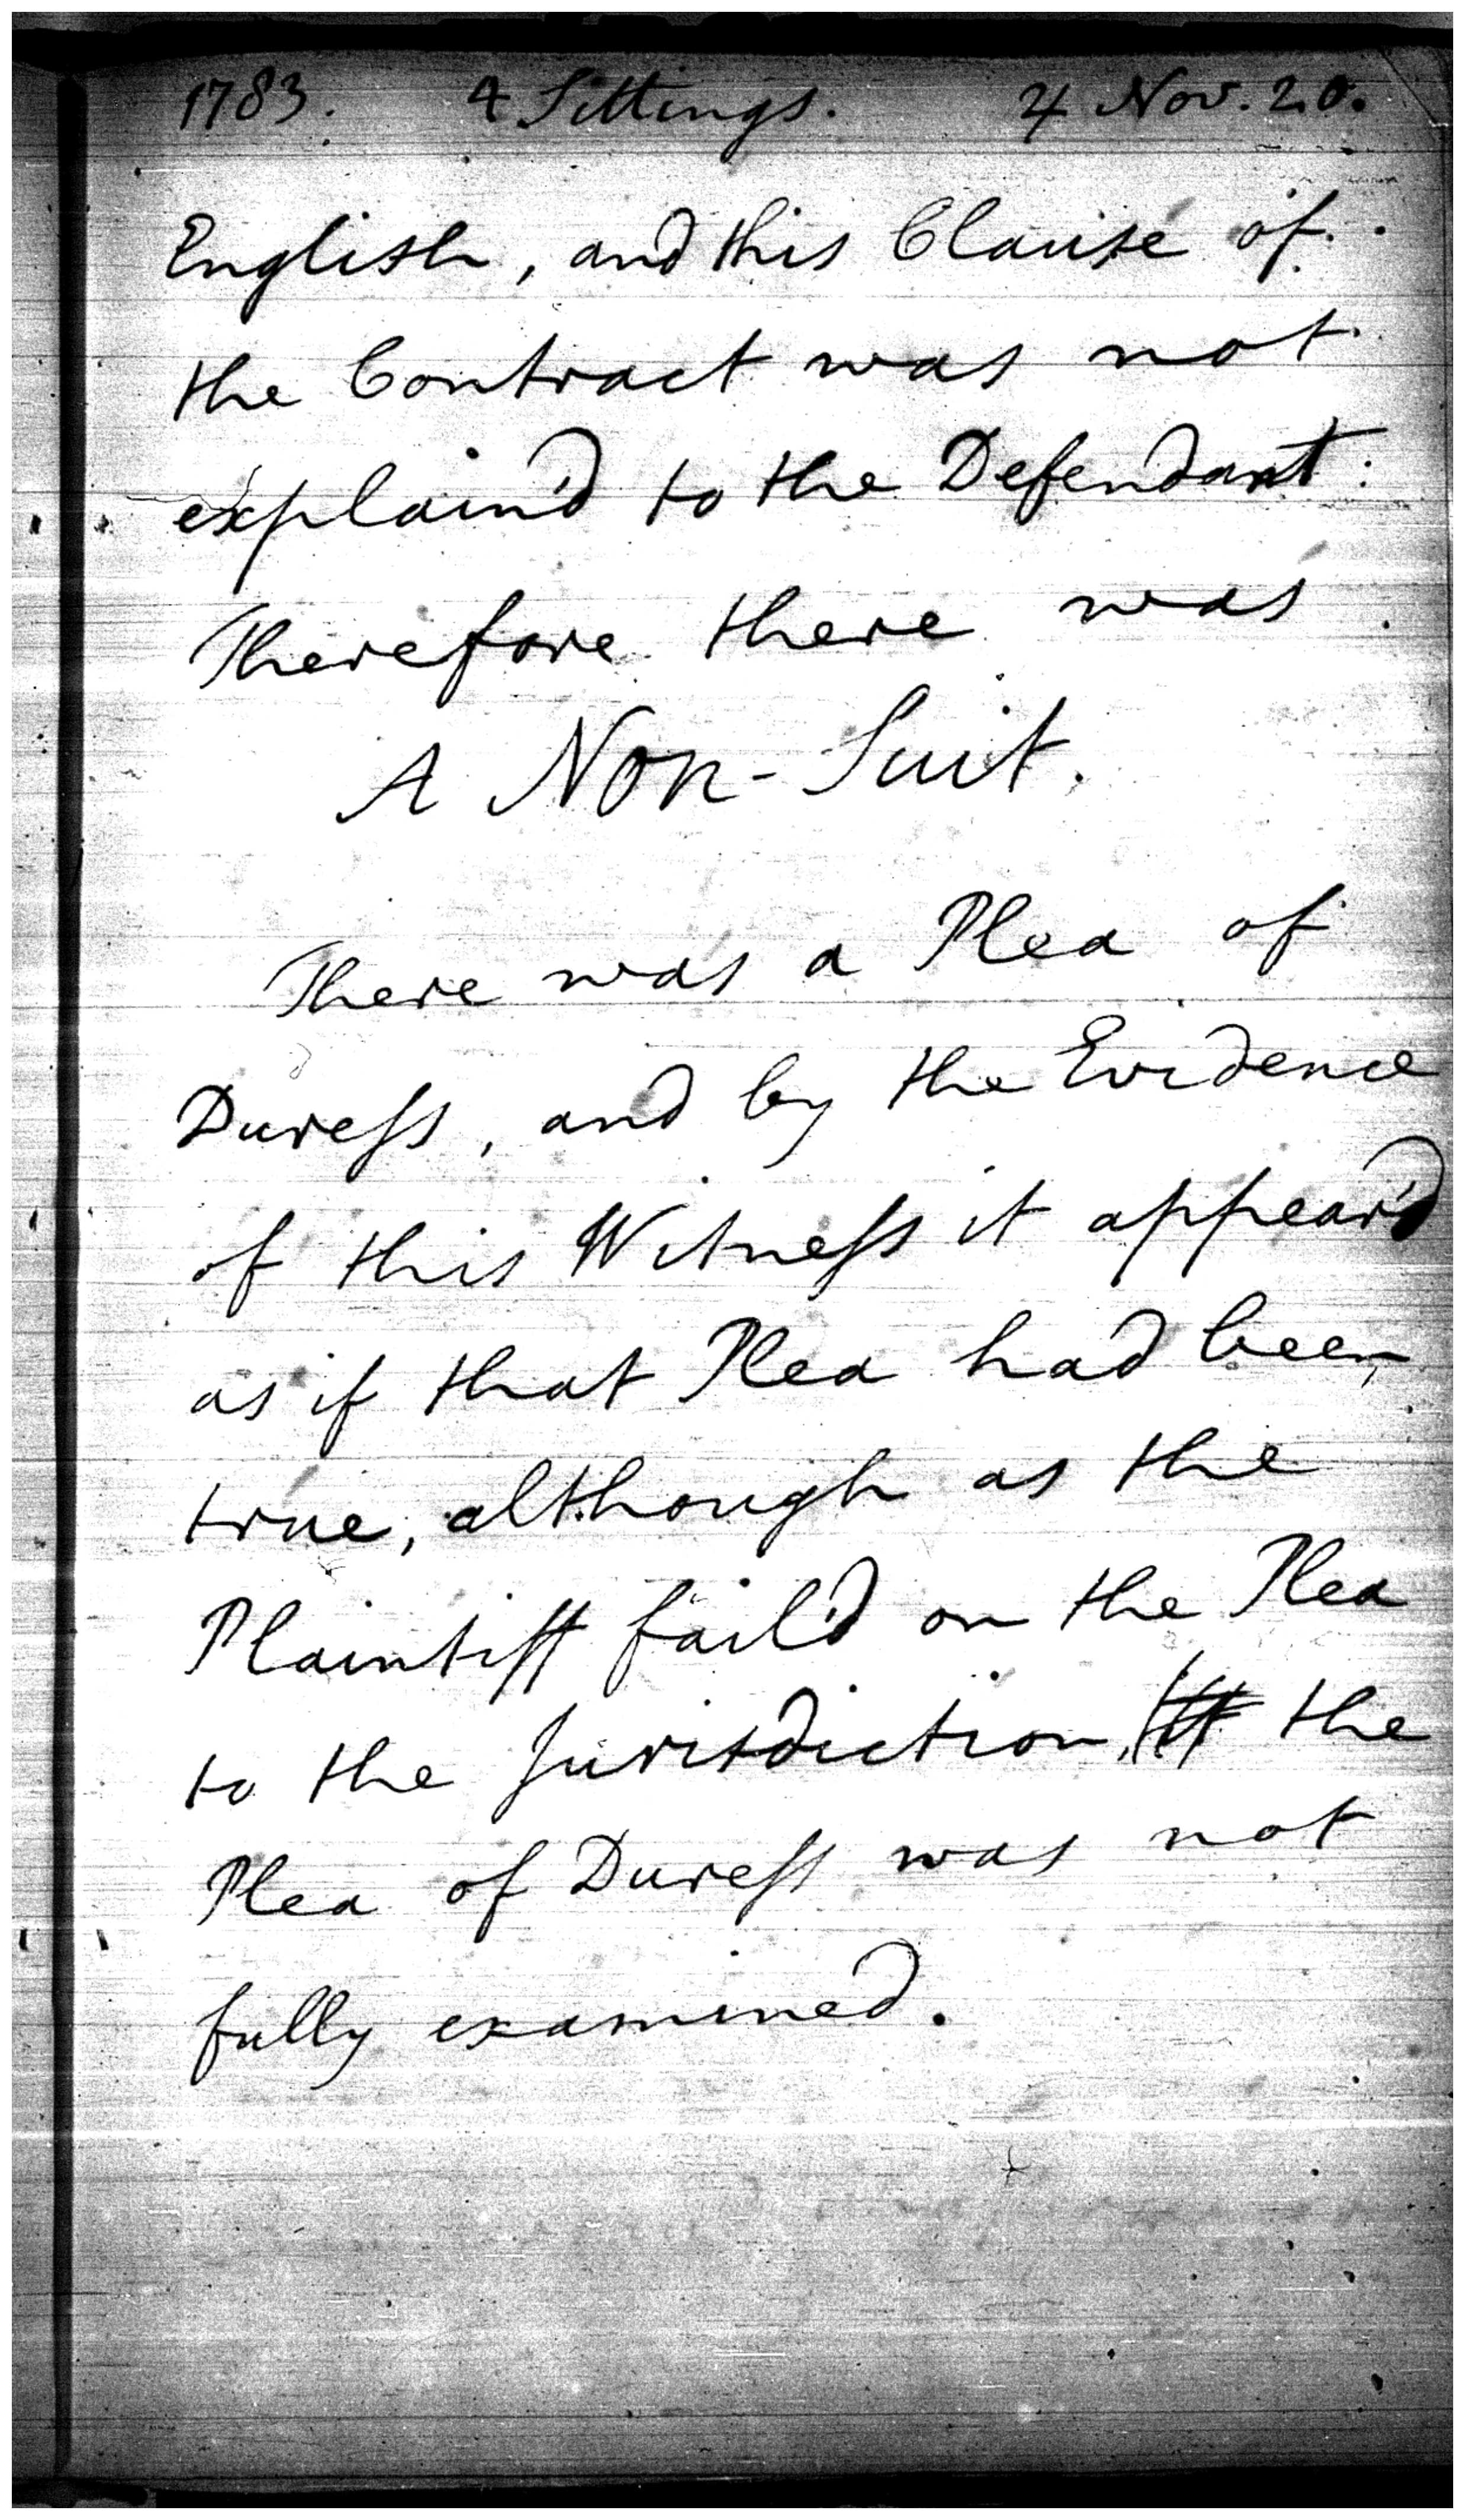 1783. 4 Sittings. 4 Nov. 20.
English, and this Clause of
the Contract was not
explain'd to the Defendant:
Therefore there was
A Non-Suit.
There was a Plea of
Dureſs, and by the Evidence
of this Witneſs it appear'd
as if that Plea had been
true, although as the
Plaintiff fail'd on the Plea
to the Jurisdiction, the
Plea of Dureſs was not
fully examined.